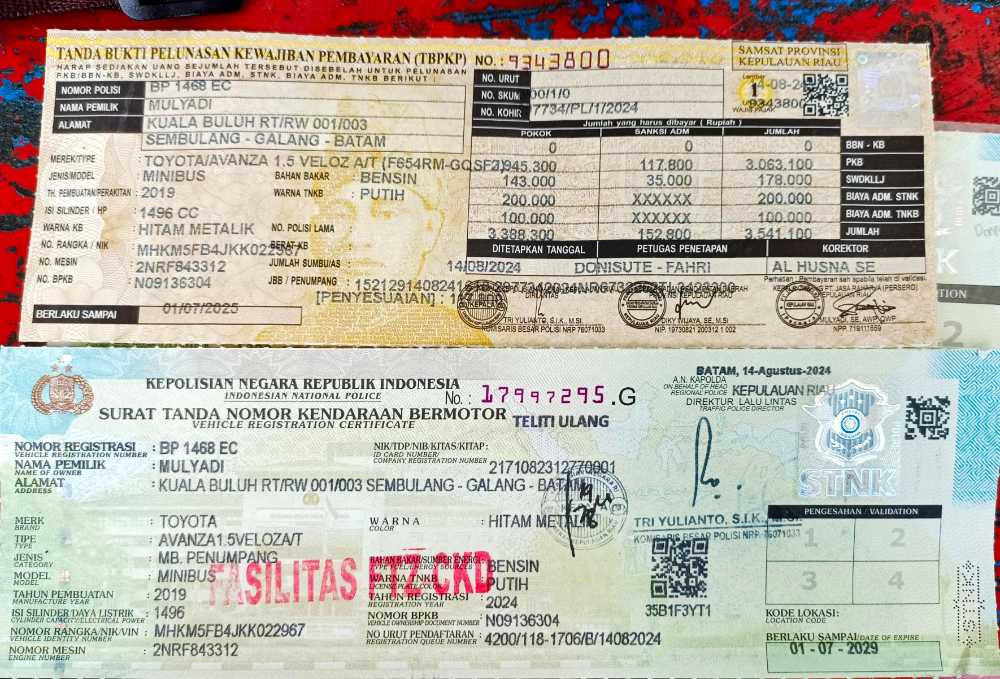 TANDA BUKTI PELUNASAN KEWAJIBAN PEMBAYARAN (TBPKP) NO. : 9343800
HARAP SEDIAKAN UANG SEJUMLAH TERSEBUT DISEBELAH UNTUK PELUNASAN
PKB/BBN-KB, SWDKLLJ, BIAYA ADM. STNK, BIAYA ADM. TNKB BERIKUT :
SAMSAT PROVINSI
KEPULAUAN RIAU
NOMOR POLISI : BP 1468 EC
NAMA PEMILIK : MULYADI
ALAMAT : KUALA BULUH RT/RW 001/003
SEMBULANG - GALANG - BATAM
MEREK/TYPE : TOYOTA/AVANZA 1.5 VELOZ A/T (F654RM-GQSF
JENIS/MODEL : MINIBUS BAHAN BAKAR : BENSIN
TH. PEMBUATAN/PERAKITAN : 2019 WARNA TNKB : PUTIH
ISI SILINDER / HP : 1496 CC
WARNA KB : HITAM METALIK NO. POLISI LAMA :
NO. RANGKA / NIK : MHKM5FB4JKK022967 BERAT KB
NO. MESIN : 2NRF843312 JUMLAH SUMBU/AS :
NO. BPKB : N09136304 JBB / PENUMPANG :
[PENYESUAIAN]
BERLAKU SAMPAI 01/07/2025
NO. URUT
NO. SKUM 00/1/0
NO. KOHIR 7734/PL/1/2024
Lembar
1
WAJIB PAJAK
Jumlah yang harus dibayar ( Rupiah )
POKOK SANKSI ADM JUMLAH
0 0 0 BBN - KB
945.300 117.800 3.063.100 PKB
143.000 35.000 178.000 SWDKLLJ
200.000 XXXXXX 200.000 BIAYA ADM. STNK
100.000 XXXXXX 100.000 BIAYA ADM. TNKB
3.388.300 152.800 3.541.100 JUMLAH
DITETAPKAN TANGGAL PETUGAS PENETAPAN KOREKTOR
14/08/2024 DONISUTE - FAHRI AL HUSNA SE
Perhatian : Pembayaran sah apabila telah di validasi
TRI YULIANTO, S.I.K., M.SI
KOMISARIS BESAR POLISI NRP 76071033
DIKY WIJAYA, SE, M.SI
NIP. 19730821 200312 1 002
KEPULAUAN RIAU
MULYADI, SE, AWP, CWP
NPP. 719111659
KEPOLISIAN NEGARA REPUBLIK INDONESIA
INDONESIAN NATIONAL POLICE
No. : 17997295.G
SURAT TANDA NOMOR KENDARAAN BERMOTOR
VEHICLE REGISTRATION CERTIFICATE
TELITI ULANG
BATAM, 14-Agustus-2024
A.N. KAPOLDA
ON BEHALF OF HEAD
REGIONAL POLICE KEPULAUAN RIAU
DIREKTUR LALU LINTAS
TRAFFIC POLICE DIRECTOR
STNK
NOMOR REGISTRASI : BP 1468 EC
VEHICLE REGISTRATION NUMBER
NAMA PEMILIK : MULYADI
NAME OF OWNER
ALAMAT : KUALA BULUH RT/RW 001/003 SEMBULANG - GALANG - BATAM
ADDRESS
NIK/TDP/NIB/KITAS/KITAP :
ID CARD NUMBER/
COMPANY REGISTRATION NUMBER
2171082312770001
MERK : TOYOTA
BRAND
TIPE : AVANZA1.5VELOZA/T
TYPE
JENIS : MB. PENUMPANG
CATEGORY
MODEL : MINIBUS
MODEL
TAHUN PEMBUATAN : 2019
MANUFACTURE YEAR
ISI SILINDER/DAYA LISTRIK : 1496
CYLINDER CAPACITY/ELECTRICAL POWER
NOMOR RANGKA/NIK/VIN : MHKM5FB4JKK022967
VEHICLE IDENTITY NUMBER
NOMOR MESIN : 2NRF843312
ENGINE NUMBER
WARNA : HITAM METALIK
COLOR
BAHAN BAKAR/SUMBER ENERGI : BENSIN
TYPE FUEL/ENERGY SOURCES
WARNA TNKB : PUTIH
LICENSE PLATE COLOR
TAHUN REGISTRASI : 2024
REGISTRATION YEAR
NOMOR BPKB : N09136304
VEHICLE OWNERSHIP DOCUMENT NUMBER
NO URUT PENDAFTARAN : 4200/118-1706/B/14082024
REGISTRATION QUEUE NUMBER
FASILITAS FTZ CKD
TRI YULIANTO, S.I.K., M.SI.
KOMISARIS BESAR POLISI NRP 76071033
35B1F3YT1
PENGESAHAN / VALIDATION
1 2
3 4
KODE LOKASI:
LOCATION CODE
BERLAKU SAMPAI/DATE OF EXPIRE :
01 - 07 - 2029
STNK